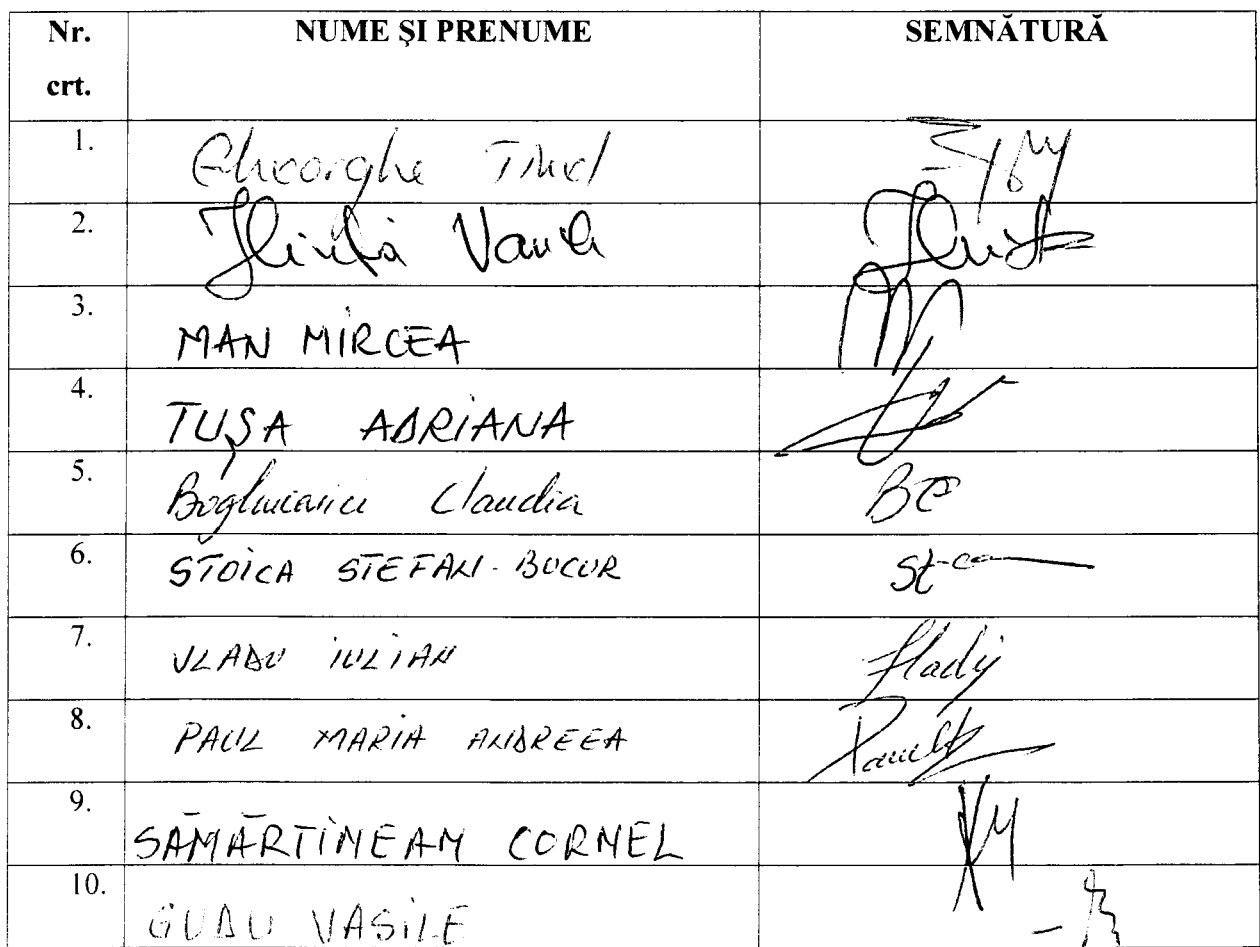 Nr. crt. NUME ŞI PRENUME SEMNĂTURĂ
1. Gheorghe Tinel
2.
3. MAN MIRCEA
4. TUȘA ADRIANA
5. Claudia BC
6. STOICA STEFAN-BUCUR
7. VLADU IULIAN
8. PAUL MARIA ANDREEA
9. SĂMĂRTINEAN CORNEL
10. GUDU VASILE